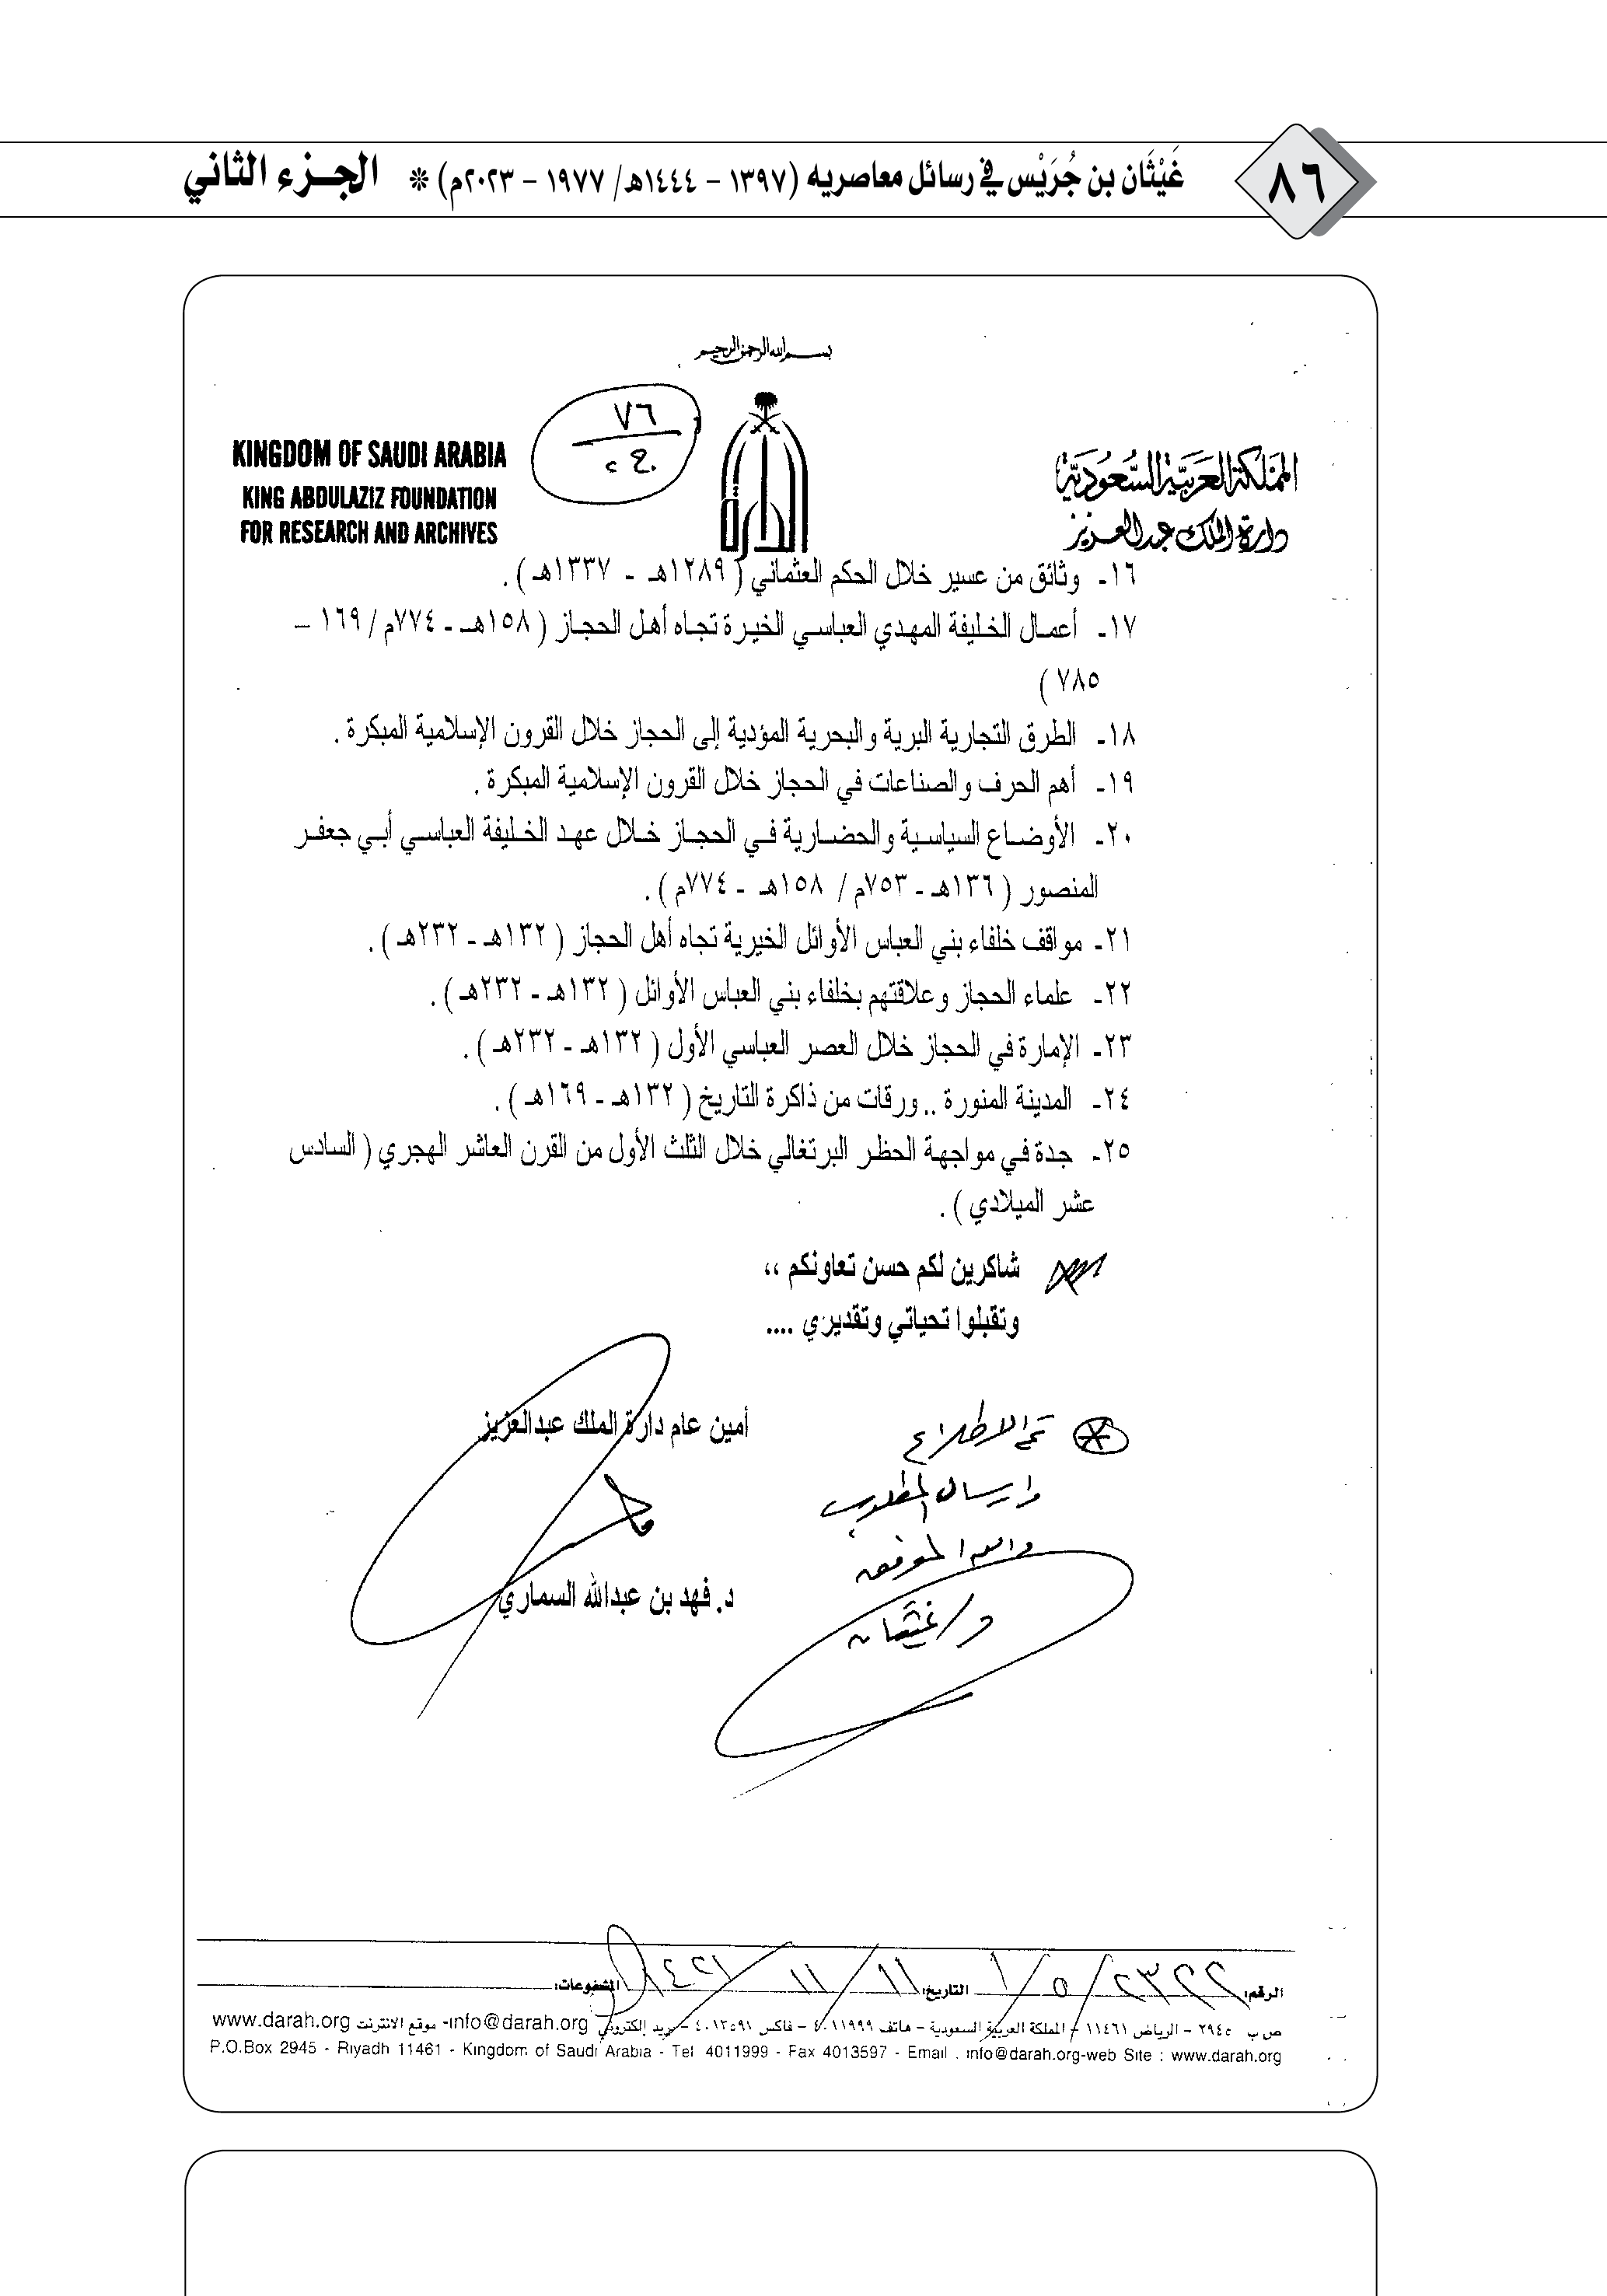 ٨٦
غَيْثَان بن جُرَيْس في رسائل معاصريه (١٣٩٧ - ١٤٤٤هـ/ ١٩٧٧ - ٢٠٢٣م) * الجـزء الثاني
بسم الله الرحمن الرحيم
المملكة العربية السعودية
دارة الملك عبدالعزيز
٧٦
KINGDOM OF SAUDI ARABIA
KING ABDULAZIZ FOUNDATION
FOR RESEARCH AND ARCHIVES
١٦- وثائق من عسير خلال الحكم العثماني ( ١٢٨٩هـ - ١٣٣٧هـ ) .
١٧- أعمال الخليفة المهدي العباسي الخيرة تجاه أهل الحجاز ( ١٥٨هـ - ٧٧٤م / ١٦٩ –
٧٨٥ )
١٨- الطرق التجارية البرية والبحرية المؤدية إلى الحجاز خلال القرون الإسلامية المبكرة .
١٩- أهم الحرف والصناعات في الحجاز خلال القرون الإسلامية المبكرة .
٢٠- الأوضاع السياسية والحضارية في الحجاز خلال عهد الخليفة العباسي أبي جعفر
المنصور ( ١٣٦هـ - ٧٥٣م / ١٥٨هـ - ٧٧٤م ) .
٢١- مواقف خلفاء بني العباس الأوائل الخيرية تجاه أهل الحجاز ( ١٣٢هـ - ٢٣٢هـ ) .
٢٢- علماء الحجاز وعلاقتهم بخلفاء بني العباس الأوائل ( ١٣٢هـ - ٢٣٢هـ ) .
٢٣- الإمارة في الحجاز خلال العصر العباسي الأول ( ١٣٢هـ - ٢٣٢هـ ) .
٢٤- المدينة المنورة .. ورقات من ذاكرة التاريخ ( ١٣٢هـ - ١٦٩هـ ) .
٢٥- جدة في مواجهة الحظر البرتغالي خلال الثلث الأول من القرن العاشر الهجري ( السادس
عشر الميلادي ) .
شاكرين لكم حسن تعاونكم ،،
وتقبلوا تحياتي وتقديري ....
أمين عام دارة الملك عبدالعزيز
د. فهد بن عبدالله السماري
تم الاطلاع
وارسال المطلوب
والله الموفق
د/ غيثان
الرقم: ٢٣٢٢/٥/١ التاريخ: ١١/١١/١٤٢١ المشفوعات:
ص ب ٢٩٤٥ – الرياض ١١٤٦١ – المملكة العربية السعودية – هاتف ٤٠١١٩٩٩ – فاكس ٤٠١٣٥٩١ – بريد إلكتروني info@darah.org- موقع الانترنت www.darah.org
P.O.Box 2945 - Riyadh 11461 - Kingdom of Saudi Arabia - Tel 4011999 - Fax 4013597 - Email . info@darah.org-web Site : www.darah.org